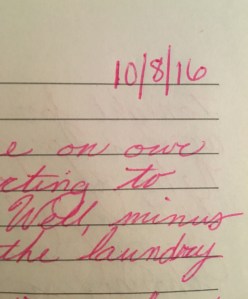 10/8/16
e on our
cting to
Well, minus
the laundry